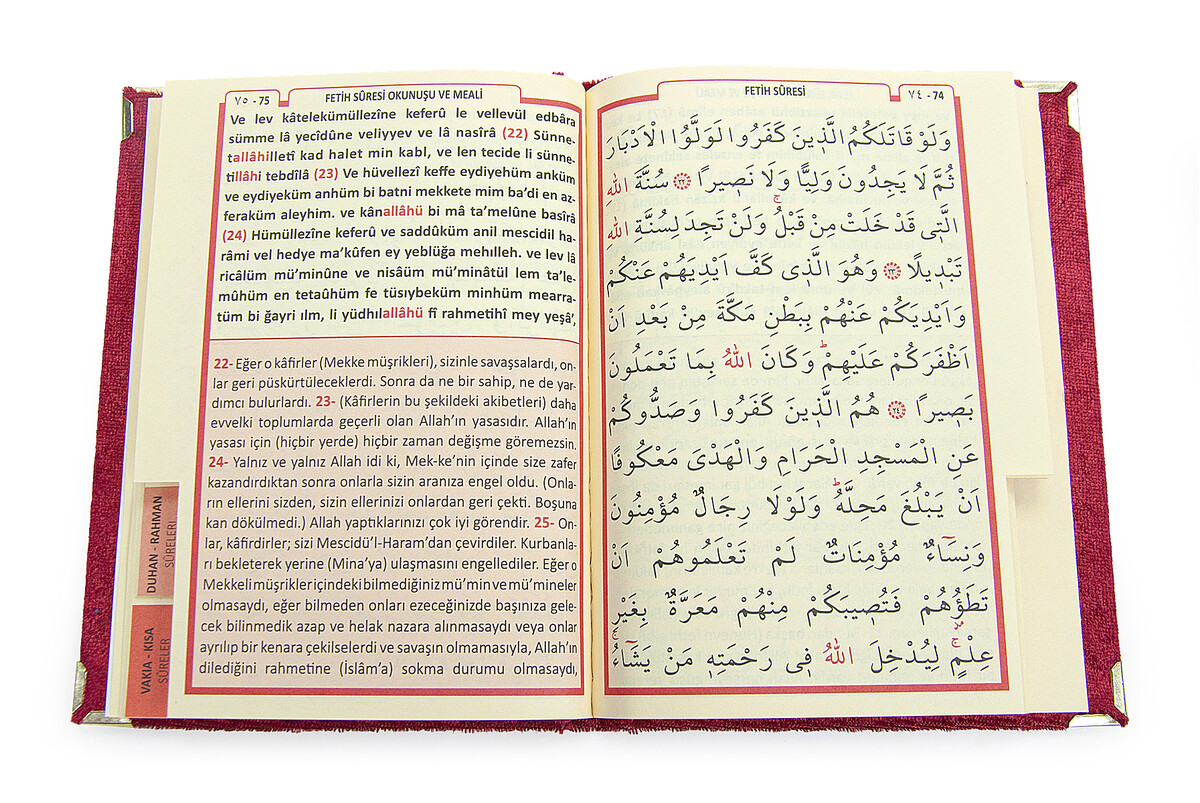 ٧٥ - 75
FETİH SÛRESİ OKUNUŞU VE MEALİ
Ve lev kâtelekümüllezîne keferû le vellevül edbâra
sümme lâ yecîdûne veliyyev ve lâ nasîrâ (22) Sünne-
tallâhilletî kad halet min kabl, ve len tecide li sünne-
tillâhi tebdîlâ (23) Ve hüvellezî keffe eydiyehüm anküm
ve eydiyeküm anhüm bi batni mekkete mim ba'di en az-
feraküm aleyhim. ve kânallâhü bi mâ ta'melûne basîrâ
(24) Hümüllezîne keferû ve saddûküm anil mescidil ha-
râmi vel hedye ma'kûfen ey yeblüğa mehılleh. ve lev lâ
ricâlüm mü'minûne ve nisâüm mü'minâtül lem ta'le-
mûhüm en tetaûhüm fe tüsıybeküm minhüm mearra-
tüm bi ğayri ılm, li yüdhılallâhü fî rahmetihî mey yeşâ',
22- Eğer o kâfirler (Mekke müşrikleri), sizinle savaşsalardı, on-
lar geri püskürtüleceklerdi. Sonra da ne bir sahip, ne de yar-
dımcı bulurlardı. 23- (Kâfirlerin bu şekildeki akibetleri) daha
evvelki toplumlarda geçerli olan Allah'ın yasasıdır. Allah'ın
yasası için (hiçbir yerde) hiçbir zaman değişme göremezsin.
24- Yalnız ve yalnız Allah idi ki, Mek-ke'nin içinde size zafer
kazandırdıktan sonra onlarla sizin aranıza engel oldu. (Onla-
rın ellerini sizden, sizin ellerinizi onlardan geri çekti. Boşuna
kan dökülmedi.) Allah yaptıklarınızı çok iyi görendir. 25- On-
lar, kâfirdirler; sizi Mescidü'l-Haram'dan çevirdiler. Kurbanla-
rı bekleterek yerine (Mina'ya) ulaşmasını engellediler. Eğer o
Mekkeli müşrikler içindeki bilmediğiniz mü'min ve mü'mineler
olmasaydı, eğer bilmeden onları ezeceğinizde başınıza gele-
cek bilinmedik azap ve helak nazara alınmasaydı veya onlar
ayrılıp bir kenara çekilselerdi ve savaşın olmamasıyla, Allah'ın
dilediğini rahmetine (İslâm'a) sokma durumu olmasaydı,
DUHAN - RAHMAN
SÛRELERİ
VAKIA - KISA
SÛRELER
FETİH SÛRESİ
٧٤ - 74
وَلَوْ قَاتَلَكُمُ الَّذِينَ كَفَرُوا لَوَلَّوُا الْاَدْبَارَ
ثُمَّ لَا يَجِدُونَ وَلِيًّا وَلَا نَصِيرًا ﴿٢٢﴾ سُنَّةَ اللّٰهِ
الَّتِي قَدْ خَلَتْ مِنْ قَبْلُۚ وَلَنْ تَجِدَ لِسُنَّةِ اللّٰهِ
تَبْدِيلًا ﴿٢٣﴾ وَهُوَ الَّذِي كَفَّ اَيْدِيَهُمْ عَنْكُمْ
وَاَيْدِيَكُمْ عَنْهُمْ بِبَطْنِ مَكَّةَ مِنْ بَعْدِ اَنْ
اَظْفَرَكُمْ عَلَيْهِمْۜ وَكَانَ اللّٰهُ بِمَا تَعْمَلُونَ
بَصِيرًا ﴿٢٤﴾ هُمُ الَّذِينَ كَفَرُوا وَصَدُّوكُمْ
عَنِ الْمَسْجِدِ الْحَرَامِ وَالْهَدْيَ مَعْكُوفًا
اَنْ يَبْلُغَ مَحِلَّهُۜ وَلَوْلَا رِجَالٌ مُؤْمِنُونَ
وَنِسَٓاءٌ مُؤْمِنَاتٌ لَمْ تَعْلَمُوهُمْ اَنْ
تَطَؤُهُمْ فَتُصِيبَكُمْ مِنْهُمْ مَعَرَّةٌ بِغَيْرِ
عِلْمٍۚ لِيُدْخِلَ اللّٰهُ فِي رَحْمَتِهِ مَنْ يَشَٓاءُۚ